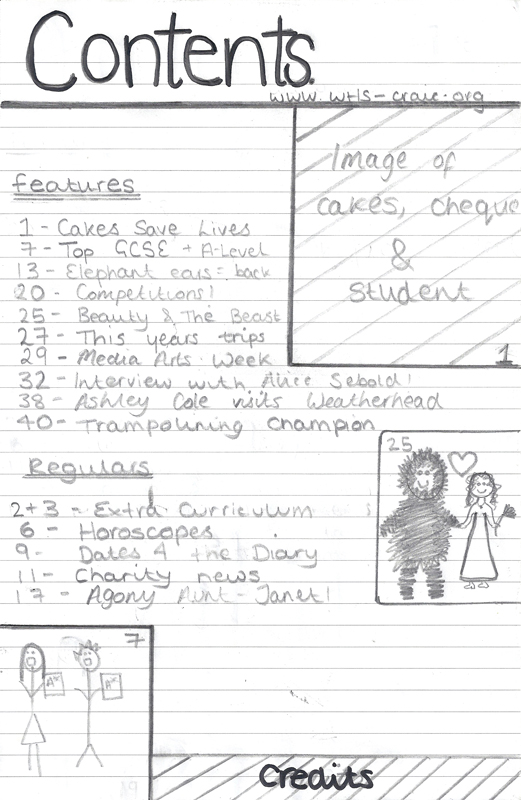 Contents.
www.whs-craic.org
Image of
cakes, cheque
&
student
1
features
1 - Cakes Save Lives
7 - Top GCSE + A-Level
13 - Elephant ears = back
20 - Competitions!
25 - Beauty & The Beast
27 - This years trips
29 - Media Arts Week
32 - Interview with Alice Sebold!
38 - Ashley Cole visits Weatherhead
40 - Trampolining Champion
Regulars
2+3 - Extra Curriculum
6 - Horoscopes
9 - Dates 4 the Diary
11 - Charity news
17 - Agony Aunt - Janet!
25
7
A*
A*
Credits